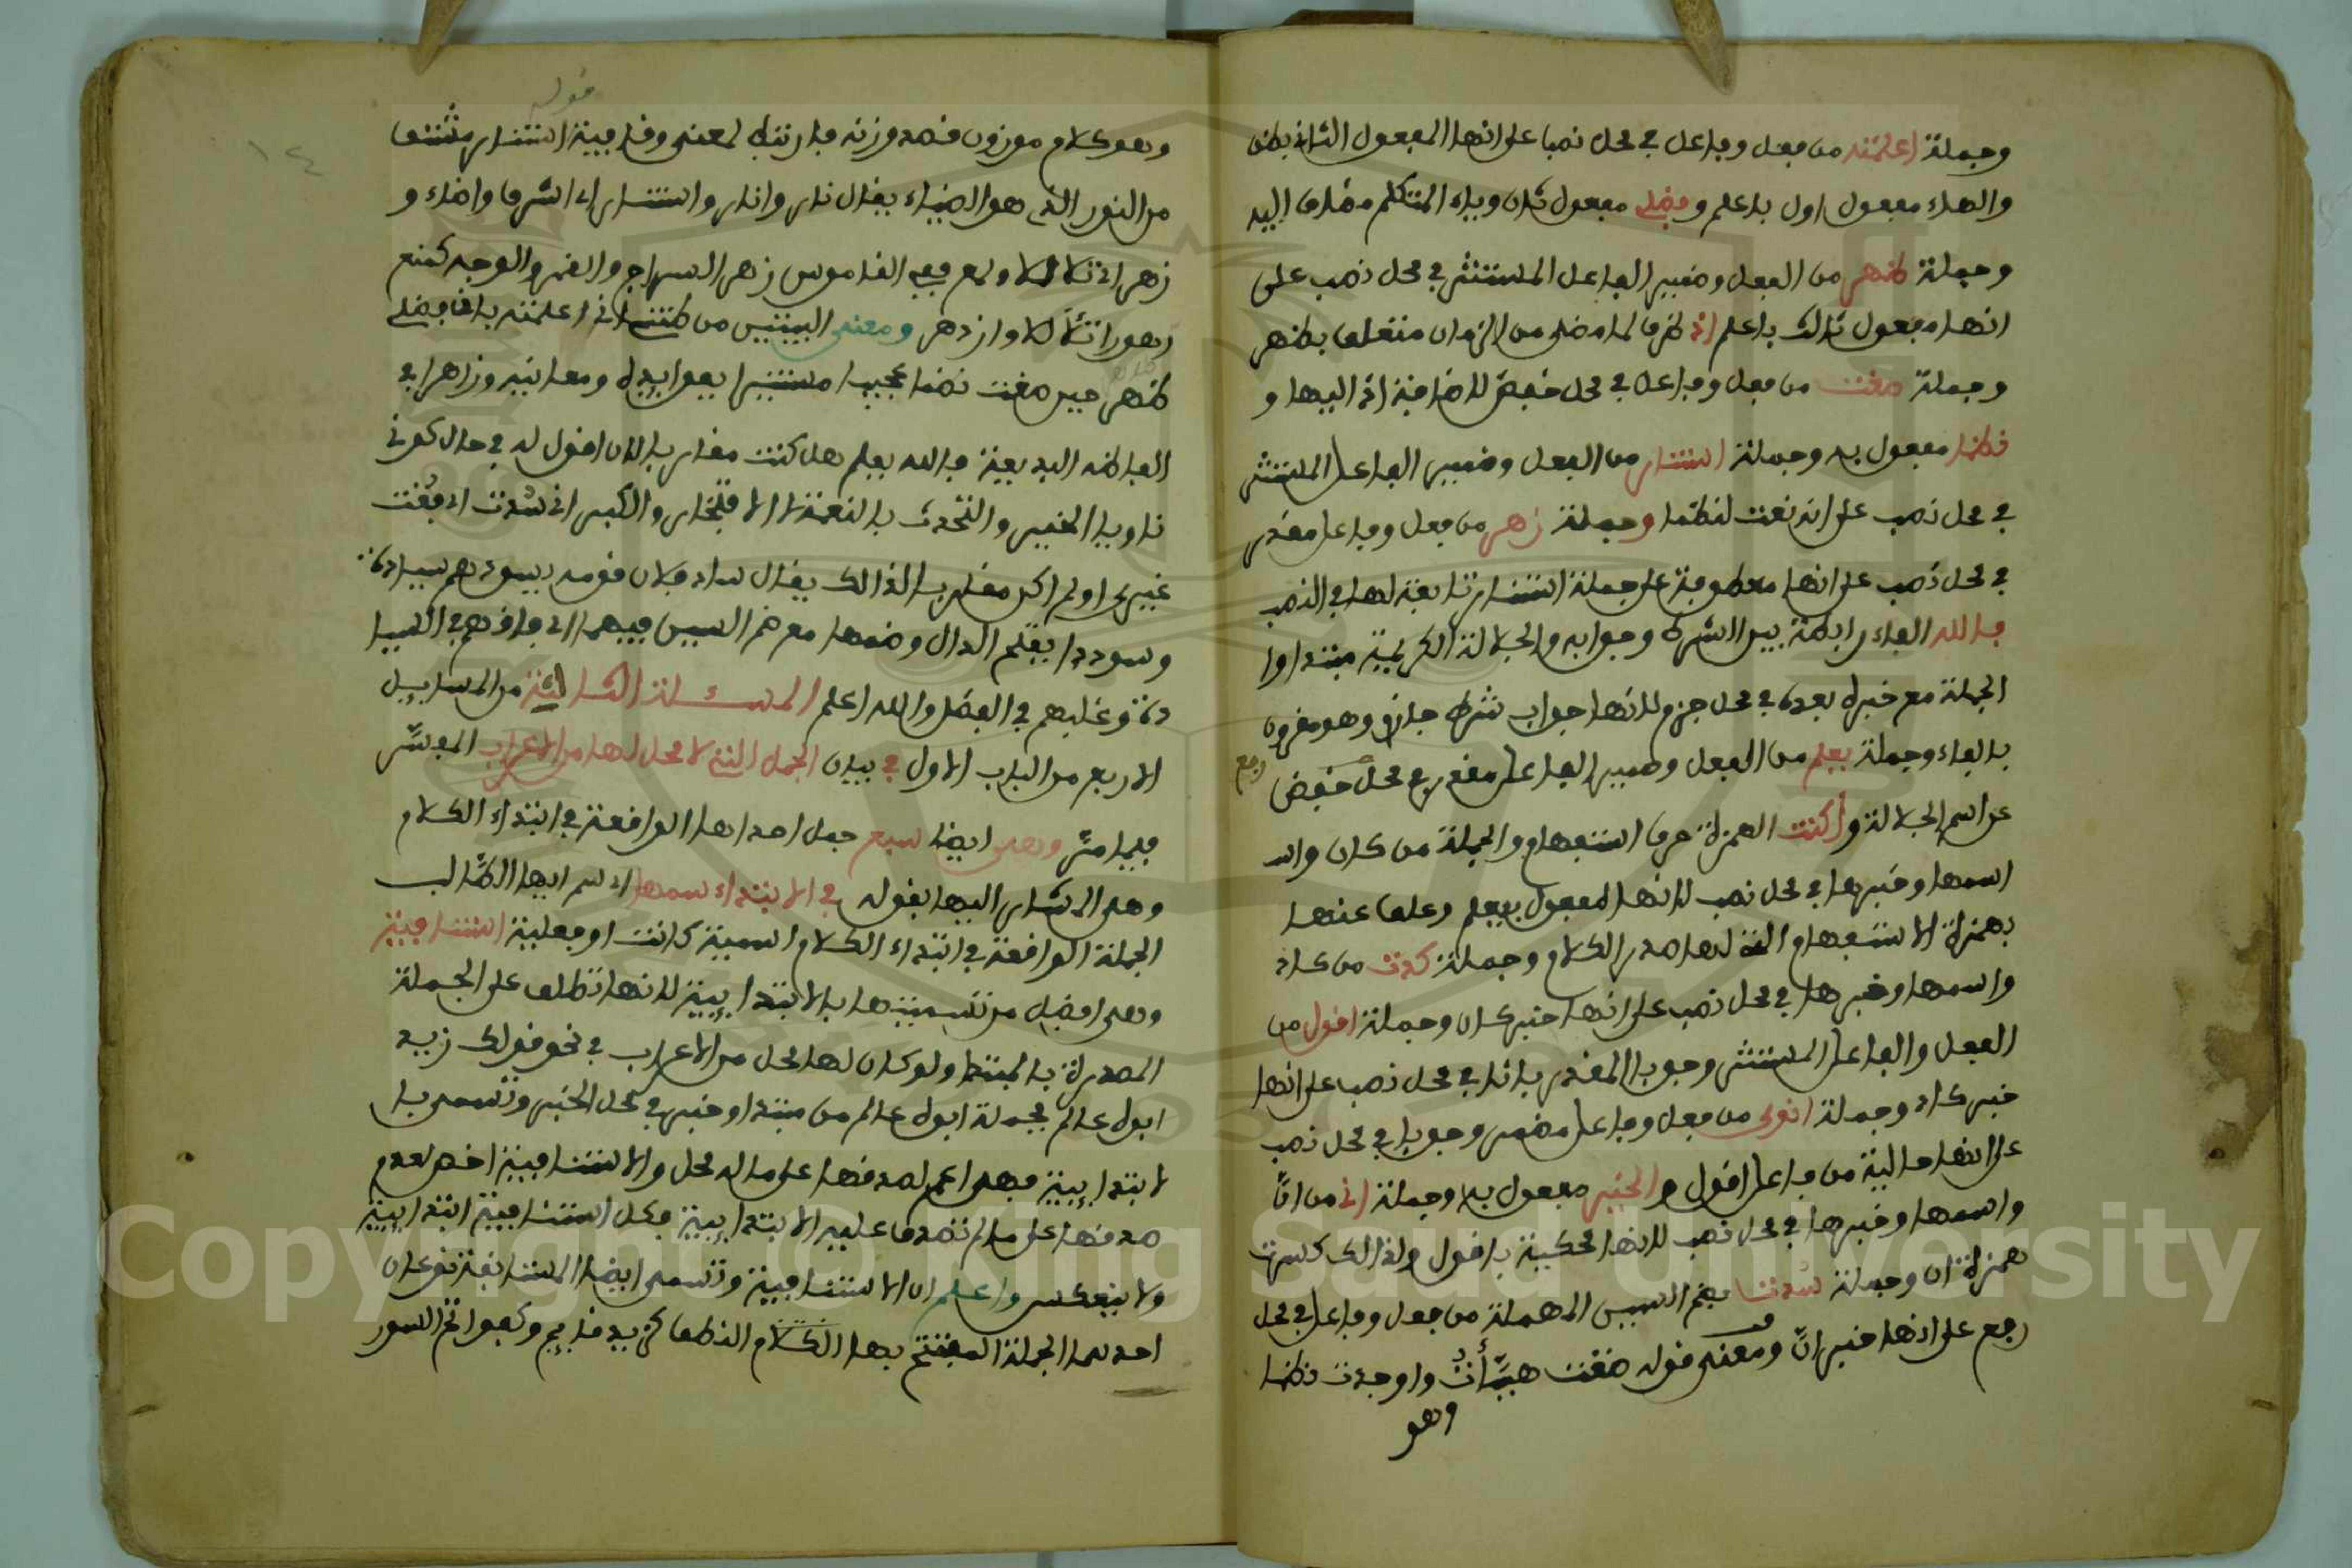 وجملة اعلمته من فعل وفاعل في محل نصبا على انها المفعول الثان بظن
والهاء مفعول اول باعلم وفضلي مفعول ثان وياء المتكلم مضاف اليه
وجملة ظهر من الفعل وضمير الفاعل المستتر في محل نصب على
انها مفعول ثالث باعلم اذ ظرف لما مضى من الزمان متعلق بظهر
وجملة صغت من فعل وفاعل في محل خفض للاضافية اذ اليها و
نظما مفعول به وجملة استنار من الفعل وضمير الفاعل المستتر
في محل نصب على انه نعت لنظما وجملة زهر من فعل وفاعل مقدر
في محل نصب على انها معطوفة على جملة استنار تابعة لها في النصب
فالله الفاء رابطة بين الشرط وجوابه والجلالة الكريمة مبتدا وا
الجملة مع خبره بعده في محل جزم لانها جواب شرط جازم وهو مقرون
بالفاء وجملة يعلم من الفعل وضمير الفاعل مقدر في محل خفض رفع
عن اسم الجلالة وأكنت الهمزة حرف استفهام والجملة من كان واسـ
اسمها وخبرها في محل نصب لانها المفعول بيعلم وعلق عنها
بهمزة الاستفهام التي لها صدر الكلام وجملة كدت من كاد
واسمها وخبرها في محل نصب على انها خبر كان وجملة اقول من
الفعل والفاعل المستتر وجوبا المقدر بانا في محل نصب على انها
خبر كاد وجملة انوى من فعل وفاعل مضمر وجوبا في محل نصب
على انها حالية من فاعل اقول والخير مفعول به وجملة اني من انّ
واسمها وخبرها في محل نصب لانها محكية باقول ولذالك كسرت
همزة ان وجملة سدت بضم السين المهملة من فعل وفاعل في محل
رفع على انها خبر انّ ومعنى قوله صغت هيّأتُ واوجدت نظما
وهو
قوله
١٤
وهو كلام موزون قصد وزنه فارتبط لمعنى وقافية استنار مشتقا
من النور الذي هو الضياء يقال نار وانار واستنار اي اشرق واضاء و
زهر اي تلألأ ولمع ففي القاموس زهر السراج والقمر والوجه كمنع
زهورا تلألأ وازدهر ومعنى البيتين من ظنني اني اعلمته بان فضلي
ظهر حين صغت نظما عجيبا مستنيرا بفوايده ومعانيه وزاهرا في
الفاظه البديعية فالله يعلم هل كنت مقاربا لان اقول له في حال كوني
ناويا الخير والتحدث بالنعمة لا الافتخار والكبر اني سُدت اي فقت
غيري اولم اكن مقاربا لذالك يقال ساد فلان قومه يسودهم سيادة
وسوددا بفتح الدال وضمها مع ضم السين فيهما اي فاقهم في السيا
دة وغلبهم في الفضل والله اعلم المسئلة الثانية من المسايل
الاربع من الباب الاول في بيان الجمل التي لا محل لها من الاعراب المفسَّر
فيما مرّ وهي ايضا سبع جمل احداها الواقعة في ابتداء الكلام
وهي المشار اليها بقوله في الابتداء سمها اي سم ايها الطَّالب
الجملة الواقعة في ابتداء الكلام اسمية كانت او فعلية استنافية
وهي افضل من تسميتها بالابتدايية لانها تطلق على الجملة
المصدرة بالمبتدا ولو كان لها محل من الاعراب في نحو قولك زيد
ابوه عالم فجملة ابوه عالم من مبتدا وخبر في محل الخبر وتسمى با
لابتدايية فهي اعم لصدقها على ما له محل والاستنافية اخص لعدم
صدقها على ما لم تصدق عليه الابتدايية فكل استنافية ابتدايية
ولا ينعكس واعلم ان الاستنافية وتسمى ايضا المستانفة نوعان
احدهما الجملة المفتتح بها الكلام النطق كزيد قايم وكفواتح السور